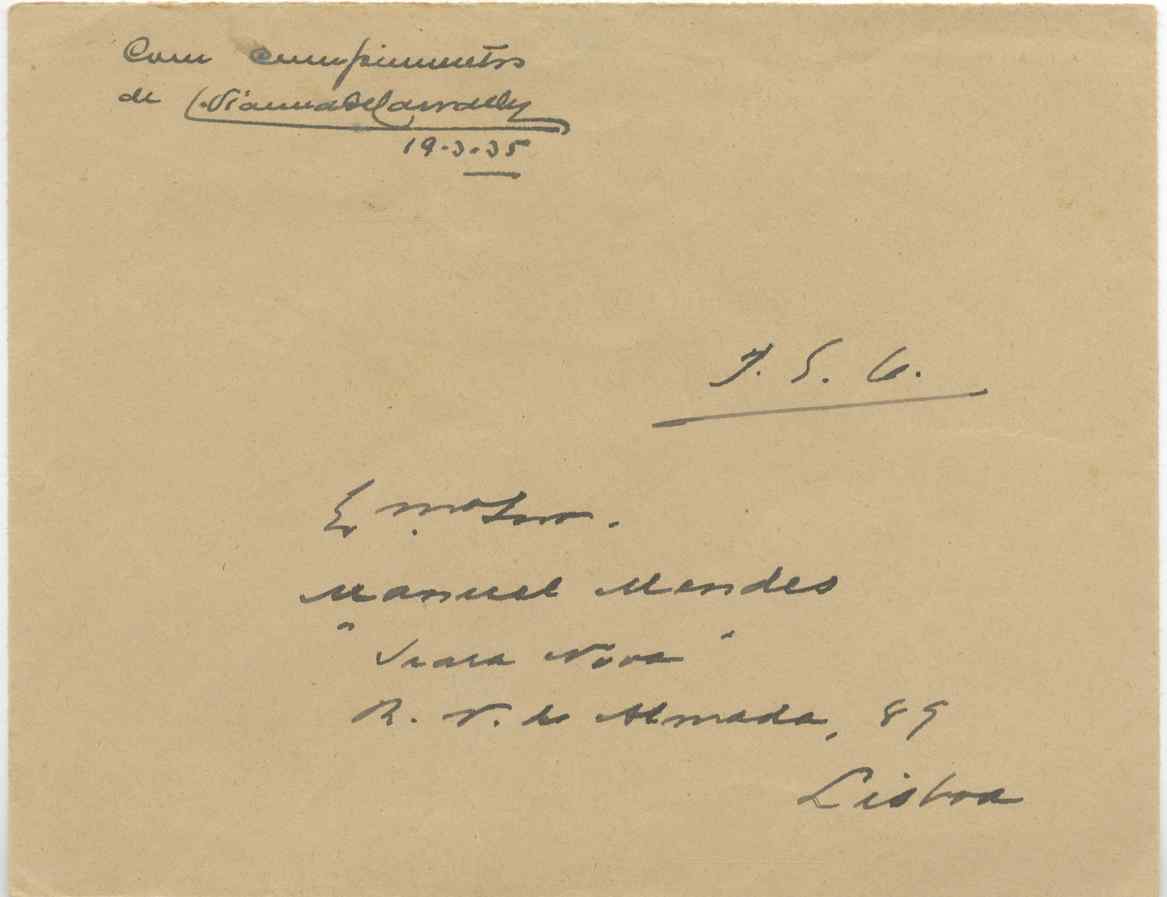 Com cumprimentos
de C. Vianna de Carvalho
19-3-35
P. E. O.
Exmo Snr.
Manuel Mendes
"Seara Nova"
R. N. do Almada, 89
Lisboa